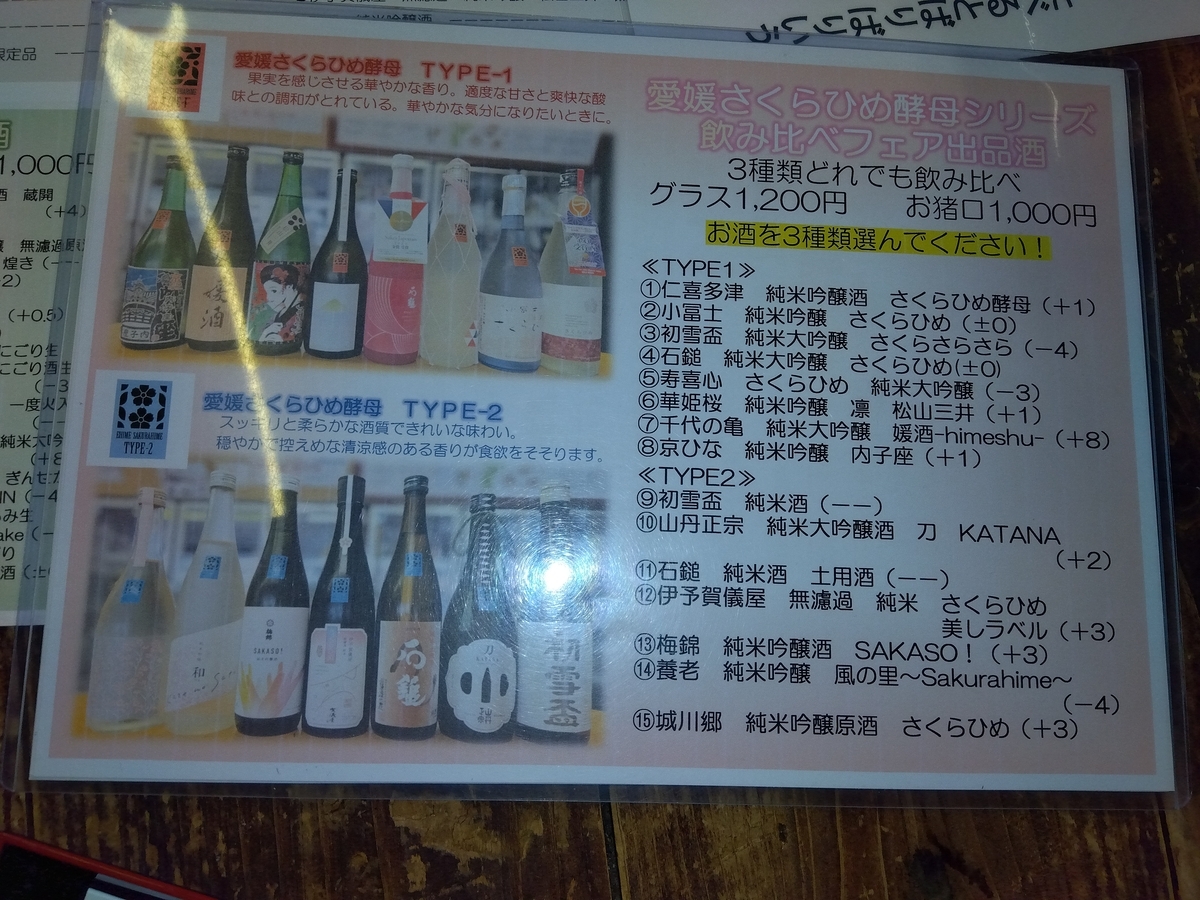 愛媛さくらひめ酵母 TYPE-1
果実を感じさせる華やかな香り。適度な甘さと爽快な酸
味との調和がとれている。華やかな気分になりたいときに。
愛媛さくらひめ酵母 TYPE-2
スッキリと柔らかな酒質できれいな味わい。
穏やかで控えめな清涼感のある香りが食欲をそそります。
EHIME SAKURAHIME
TYPE-2
愛媛さくらひめ酵母シリーズ
飲み比べフェア出品酒
3種類どれでも飲み比べ
グラス1,200円 お猪口1,000円
お酒を3種類選んでください!
≪TYPE1≫
①仁喜多津 純米吟醸酒 さくらひめ酵母(+1)
②小冨士 純米吟醸 さくらひめ(±0)
③初雪盃 純米大吟醸 さくらさらさら(-4)
④石鎚 純米大吟醸 さくらひめ(±0)
⑤寿喜心 さくらひめ 純米大吟醸(-3)
⑥華姫桜 純米吟醸 凛 松山三井(+1)
⑦千代の亀 純米大吟醸 媛酒-himeshu-(+8)
⑧京ひな 純米吟醸 内子座(+1)
≪TYPE2≫
⑨初雪盃 純米酒(--)
⑩山丹正宗 純米大吟醸酒 刀 KATANA
(+2)
⑪石鎚 純米酒 土用酒(--)
⑫伊予賀儀屋 無濾過 純米 さくらひめ
美しラベル(+3)
⑬梅錦 純米吟醸酒 SAKASO!(+3)
⑭養老 純米吟醸 風の里~Sakurahime~
(-4)
⑮城川郷 純米吟醸原酒 さくらひめ(+3)
媛酒
和
SAKASO!
石鎚
刀
初雪盃
限定品
酒
1,000円
酒 蔵開
(+4)
煌き(--
(+0.5)
にごり生
にごり酒生
一度火入
純米大吟